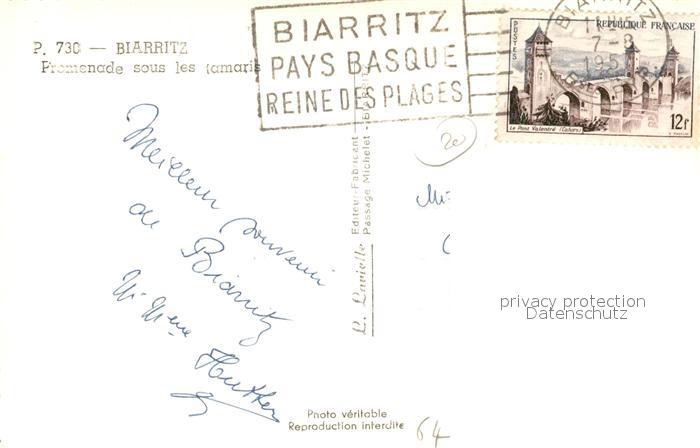 P. 730 — BIARRITZ
Promenade sous les tamaris
BIARRITZ
PAYS BASQUE
REINE DES PLAGES
BIARRITZ
7-8
195
REPUBLIQUE FRANÇAISE
POSTES
12f
Le Pont Valentré (Cahors)
20
Meilleur souvenir
de Biarritz
M. Mme
L.
Editeur-Fabricant
Passage Michelet - BIARRITZ
privacy protection
Datenschutz
Photo véritable
Reproduction interdite
64